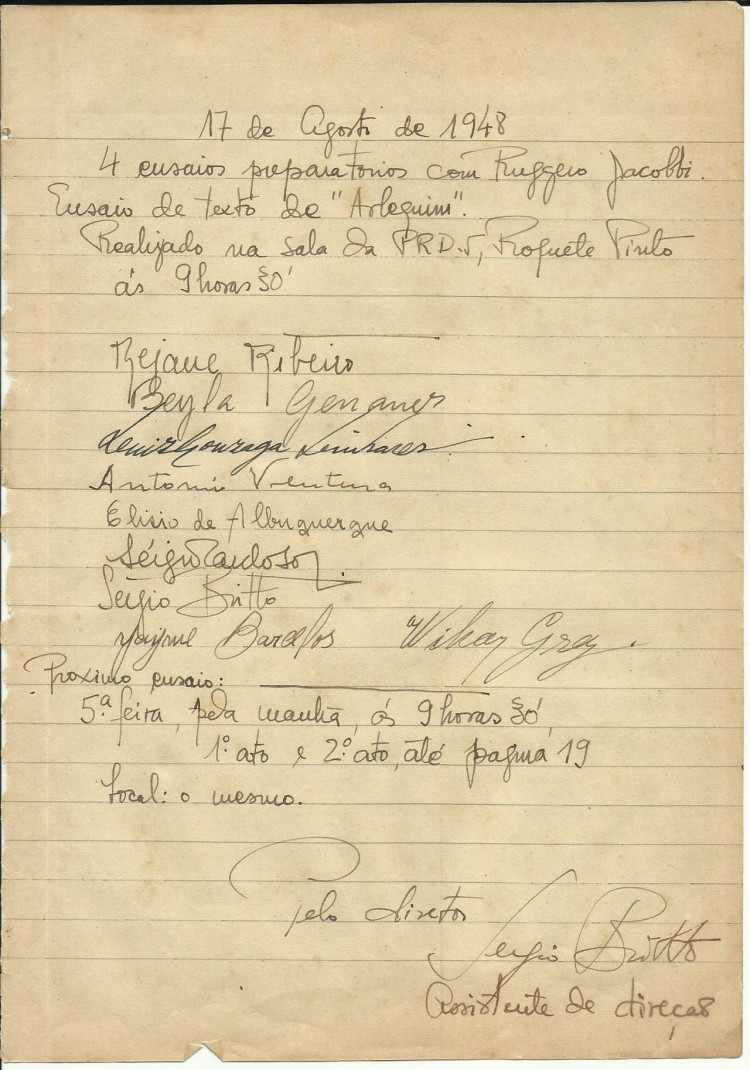 17 de Agosto de 1948
4 ensaios preparatorios com Ruggero Jacobbi.
Ensaio de texto do "Arlequim".
Realizado na sala da PRD-5, Roquete Pinto
ás 9 horas e 30'
Rejane Ribeiro
Beyla Genauer
Luiz Gonzaga Linhares
Antonio Ventura
Elisio de Albuquerque
Sérgio Cardoso
Sergio Britto
Jayme Barcelos Wikar Grey.
Proximo ensaio:
5.ª feira, pela manhã, ás 9 horas e 30',
1.º ato e 2.º ato, até pagina 19
Local: o mesmo.
Pelo diretor
Sergio Britto
Assistente de direção